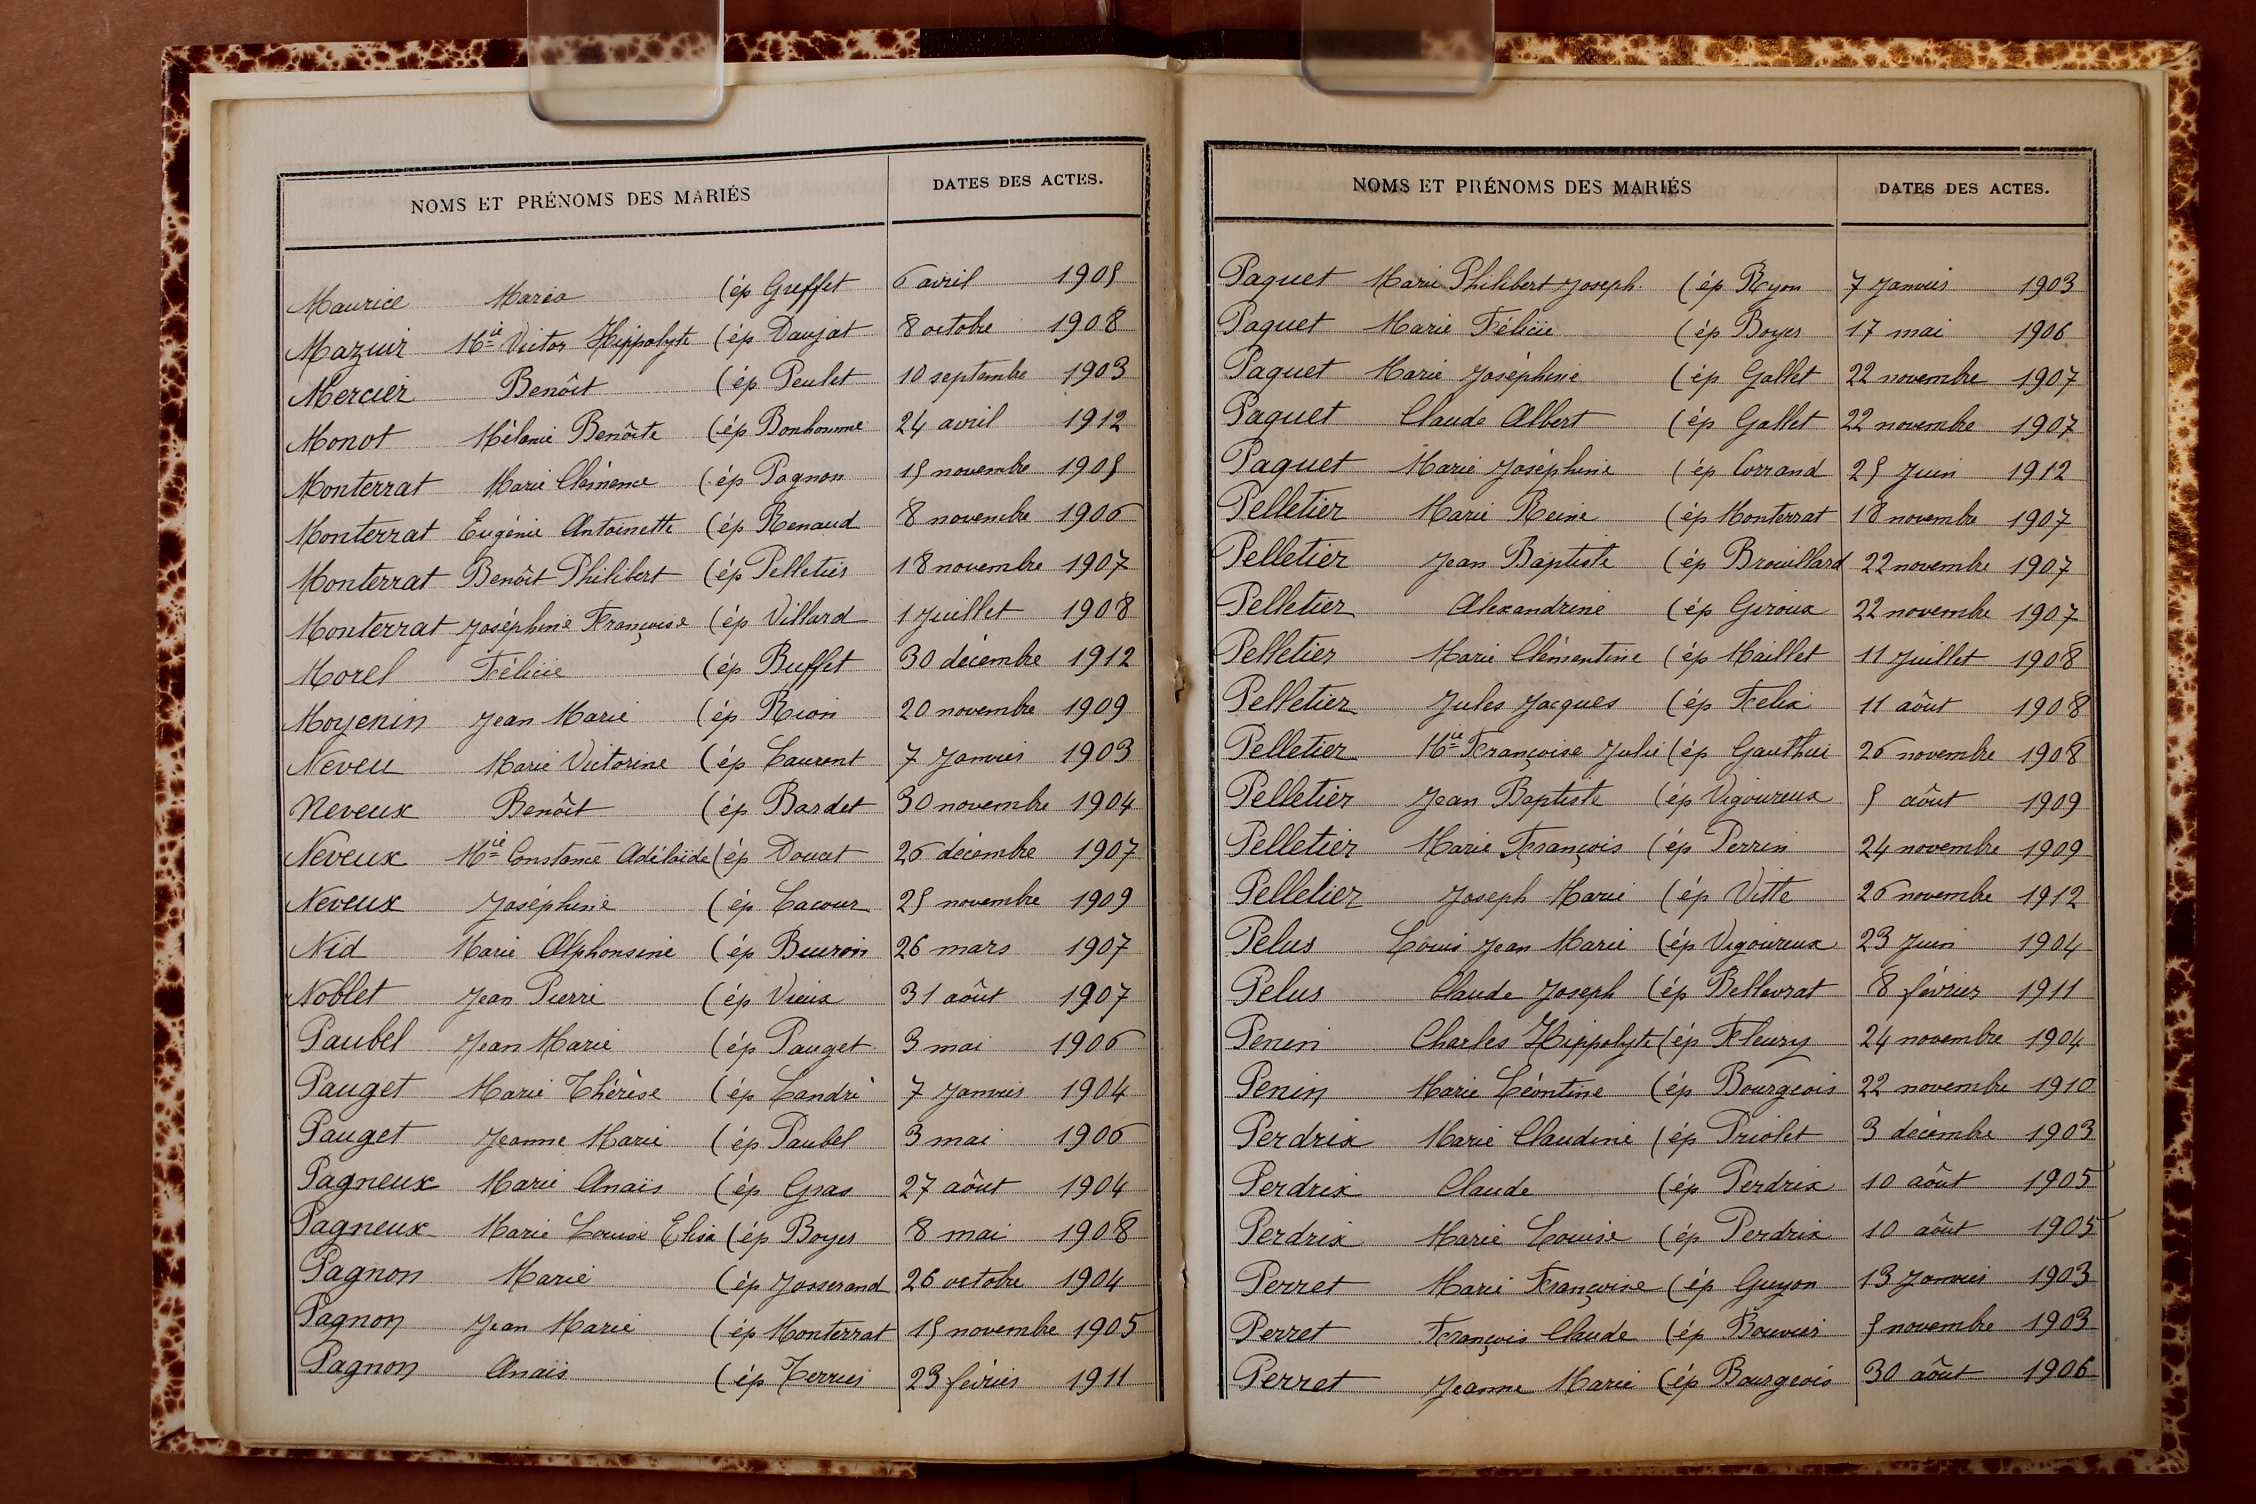 NOMS ET PRÉNOMS DES MARIÉS DATES DES ACTES.
Maurice Maria (ép Greffet 6 avril 1905
Mazuir Mie Victor Hippolyte (ép Daujat 8 octobre 1908
Mercier Benôit (ép Peulet 10 septembre 1903
Monot Mélanie Benôite (ép Bonhomme 24 avril 1912
Monterrat Marie Clémence (ép Pagnon 15 novembre 1905
Monterrat Eugénie Antoinette (ép Renaud 8 novembre 1906
Monterrat Benôit Philibert (ép Pelletier 18 novembre 1907
Monterrat Joséphine Françoise (ép Villard 1 Juillet 1908
Morel Félicie (ép Buffet 30 décembre 1912
Moyenin Jean Marie (ép Rion 20 novembre 1909
Neveu Marie Victorine (ép Laurent 7 Janvier 1903
Neveux Benôit (ép Bardet 30 novembre 1904
Neveux Mie Constance Adélaïde (ép Douat 26 décembre 1907
Neveux Joséphine (ép Lacour 25 novembre 1909
Nid Marie Alphonsine (ép Buiron 26 mars 1907
Noblet Jean Pierre (ép Vieux 31 aôut 1907
Paubel Jean Marie (ép Pauget 3 mai 1906
Pauget Marie Thérèse (ép Landré 7 Janvier 1904
Pauget Jeanne Marie (ép Paubel 3 mai 1906
Pagneux Marie Anaïs (ép Gras 27 aôut 1904
Pagneux Marie Louise Elisa (ép Boyer 8 mai 1908
Pagnon Marie (ép Josserand 26 octobre 1904
Pagnon Jean Marie (ép Monterrat 15 novembre 1905
Pagnon Anaïs (ép Terrier 23 février 1911
NOMS ET PRÉNOMS DES MARIÉS DATES DES ACTES.
Paquet Marie Philibert Joseph (ép Ryon 7 Janvier 1903
Paquet Marie Félicie (ép Boyer 17 mai 1906
Paquet Marie Joséphine (ép Gallet 22 novembre 1907
Paquet Claude Albert (ép Gallet 22 novembre 1907
Paquet Marie Joséphine (ép Corrand 25 Juin 1912
Pelletier Marie Reine (ép Monterrat 18 novembre 1907
Pelletier Jean Baptiste (ép Brouillard 22 novembre 1907
Pelletier Alexandrine (ép Giroux 22 novembre 1907
Pelletier Marie Clémentine (ép Maillet 11 Juillet 1908
Pelletier Jules Jacques (ép Felix 11 aôut 1908
Pelletier Mie Françoise Julie (ép Gauthier 26 novembre 1908
Pelletier Jean Baptiste (ép Vigoureux 5 aôut 1909
Pelletier Marie François (ép Perrin 24 novembre 1909
Pelletier Joseph Marie (ép Vitte 26 novembre 1912
Pelus Louis Jean Marie (ép Vigoureux 23 Juin 1904
Pelus Claude Joseph (ép Bellevrat 8 février 1911
Penin Charles Hippolyte (ép Fleury 24 novembre 1904
Penin Marie Léontine (ép Bourgeois 22 novembre 1910
Perdrix Marie Claudine (ép Priolet 3 décembre 1903
Perdrix Claude (ép Perdrix 10 aôut 1905
Perdrix Marie Louise (ép Perdrix 10 aôut 1905
Perret Marie Françoise (ép Guyon 13 Janvier 1903
Perret François Claude (ép Bouvier 5 novembre 1903
Perret Jeanne Marie (ép Bourgeois 30 aôut 1906